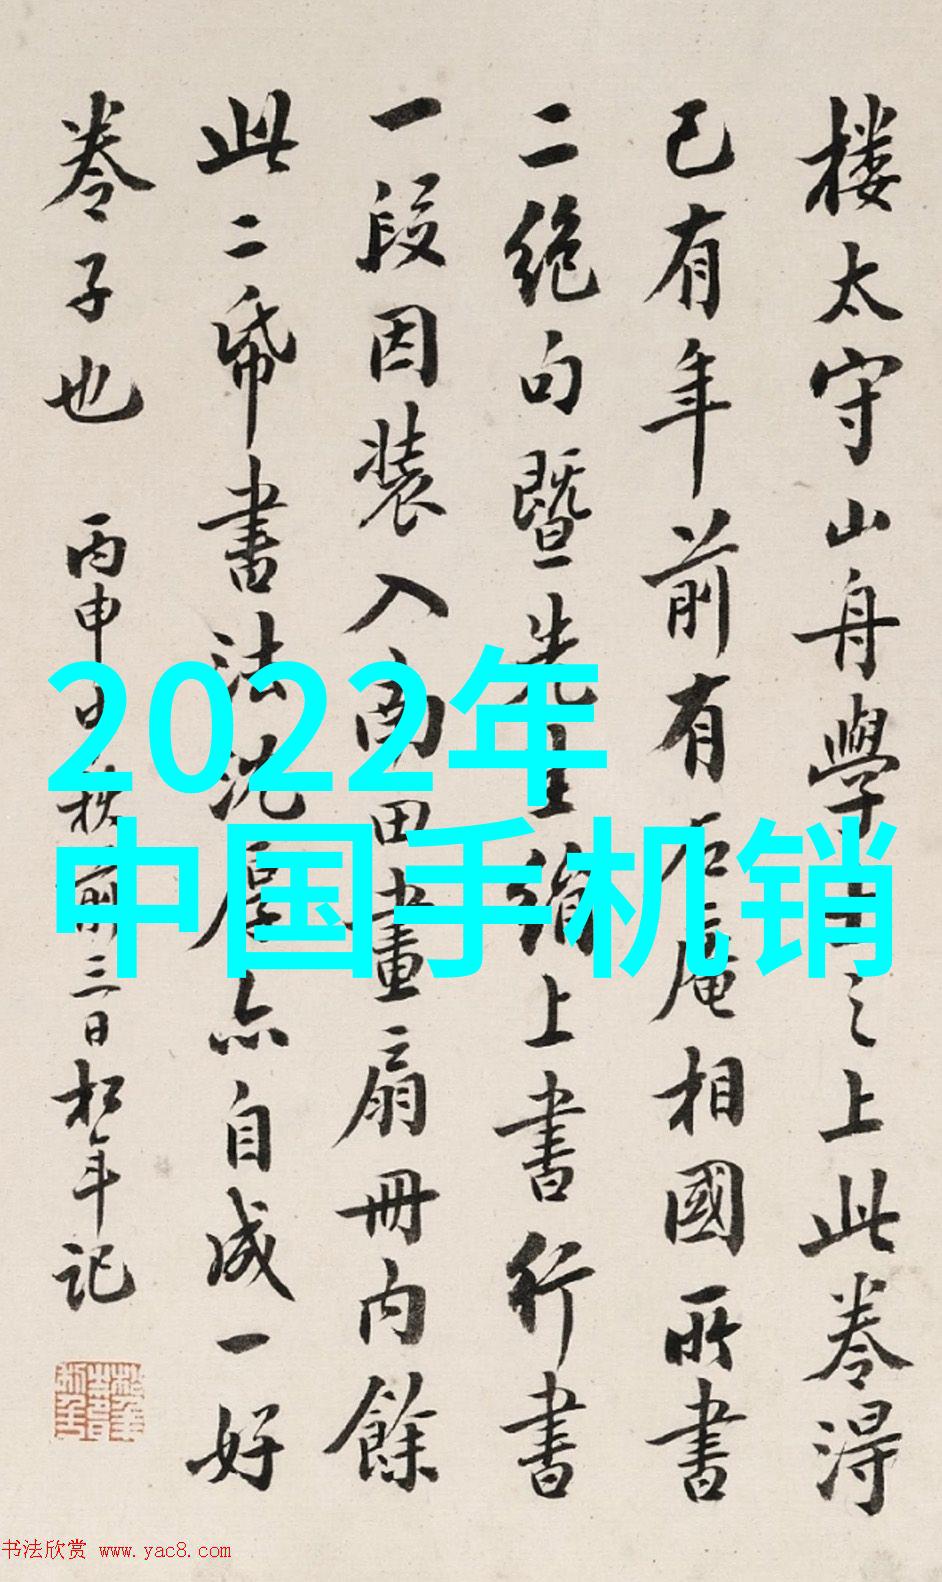 楼太守山舟學士之上此卷淂
已有年前有石庵相國所書
二絕句暨先生絹上書行書
一段因装入南田畫扇冊内餘
此二帋書法沈厚亦自成一好
卷子也 丙申中秋前三日松年記
2022年
中国手机销
书法欣赏 www.yac8.com